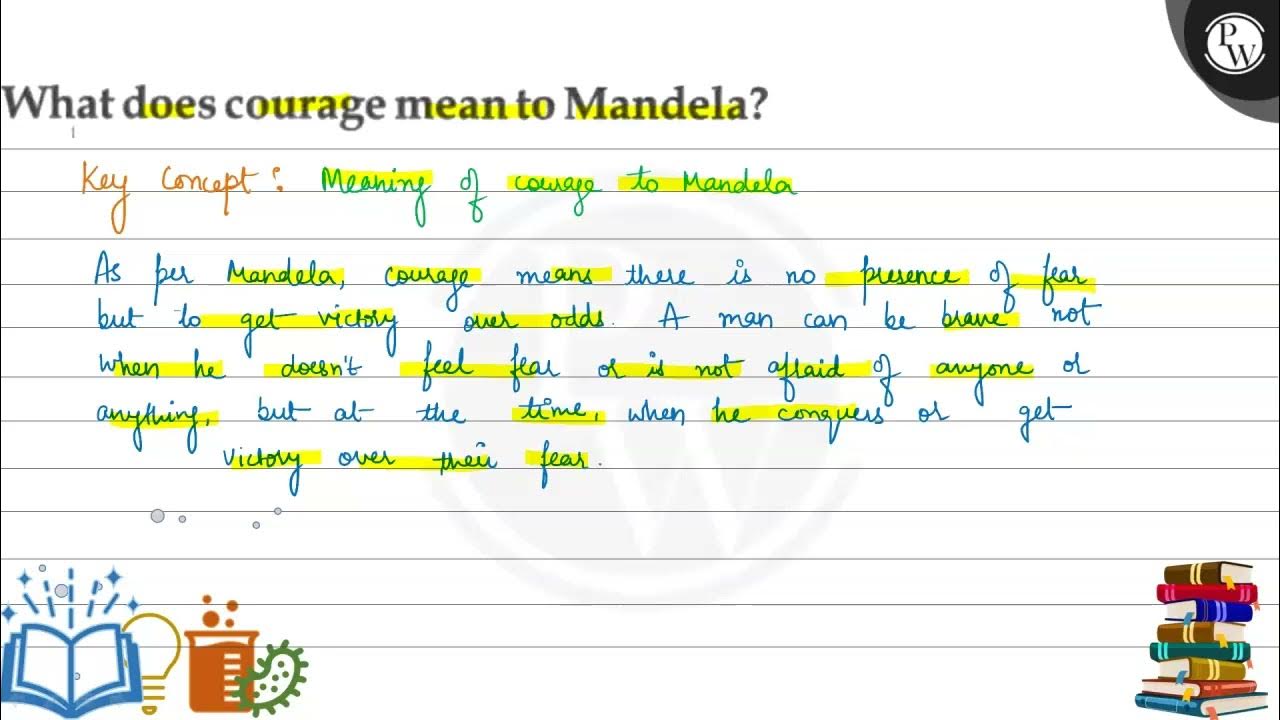 PW
What does courage mean to Mandela?
Key Concept: Meaning of courage to Mandela
As per Mandela, courage means there is no presence of fear
but to get victory over odds. A man can be brave not
when he doesn't feel fear or is not afraid of anyone or
anything, but at the time, when he conquers or get
victory over their fear.
PW